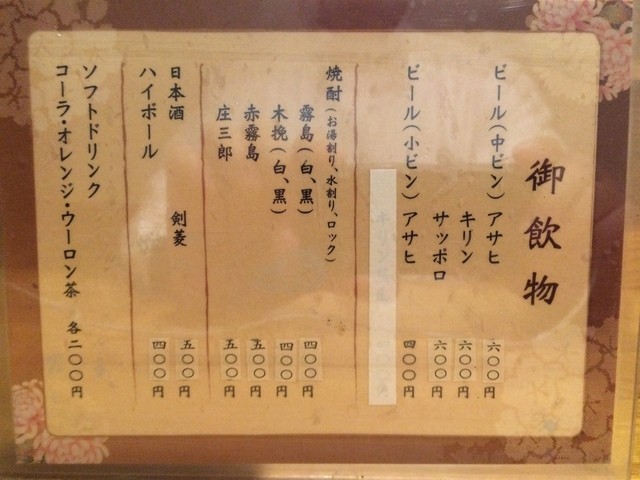 御飲物
ビール(中ビン) アサヒ 六〇〇円
キリン 六〇〇円
サッポロ 六〇〇円
ビール(小ビン) アサヒ 四〇〇円
焼酎(お湯割り、水割り、ロック)
霧島(白、黒) 四〇〇円
木挽(白、黒) 四〇〇円
赤霧島 五〇〇円
庄三郎 五〇〇円
日本酒 剣菱 五〇〇円
ハイボール 四〇〇円
ソフトドリンク
コーラ・オレンジ・ウーロン茶 各二〇〇円